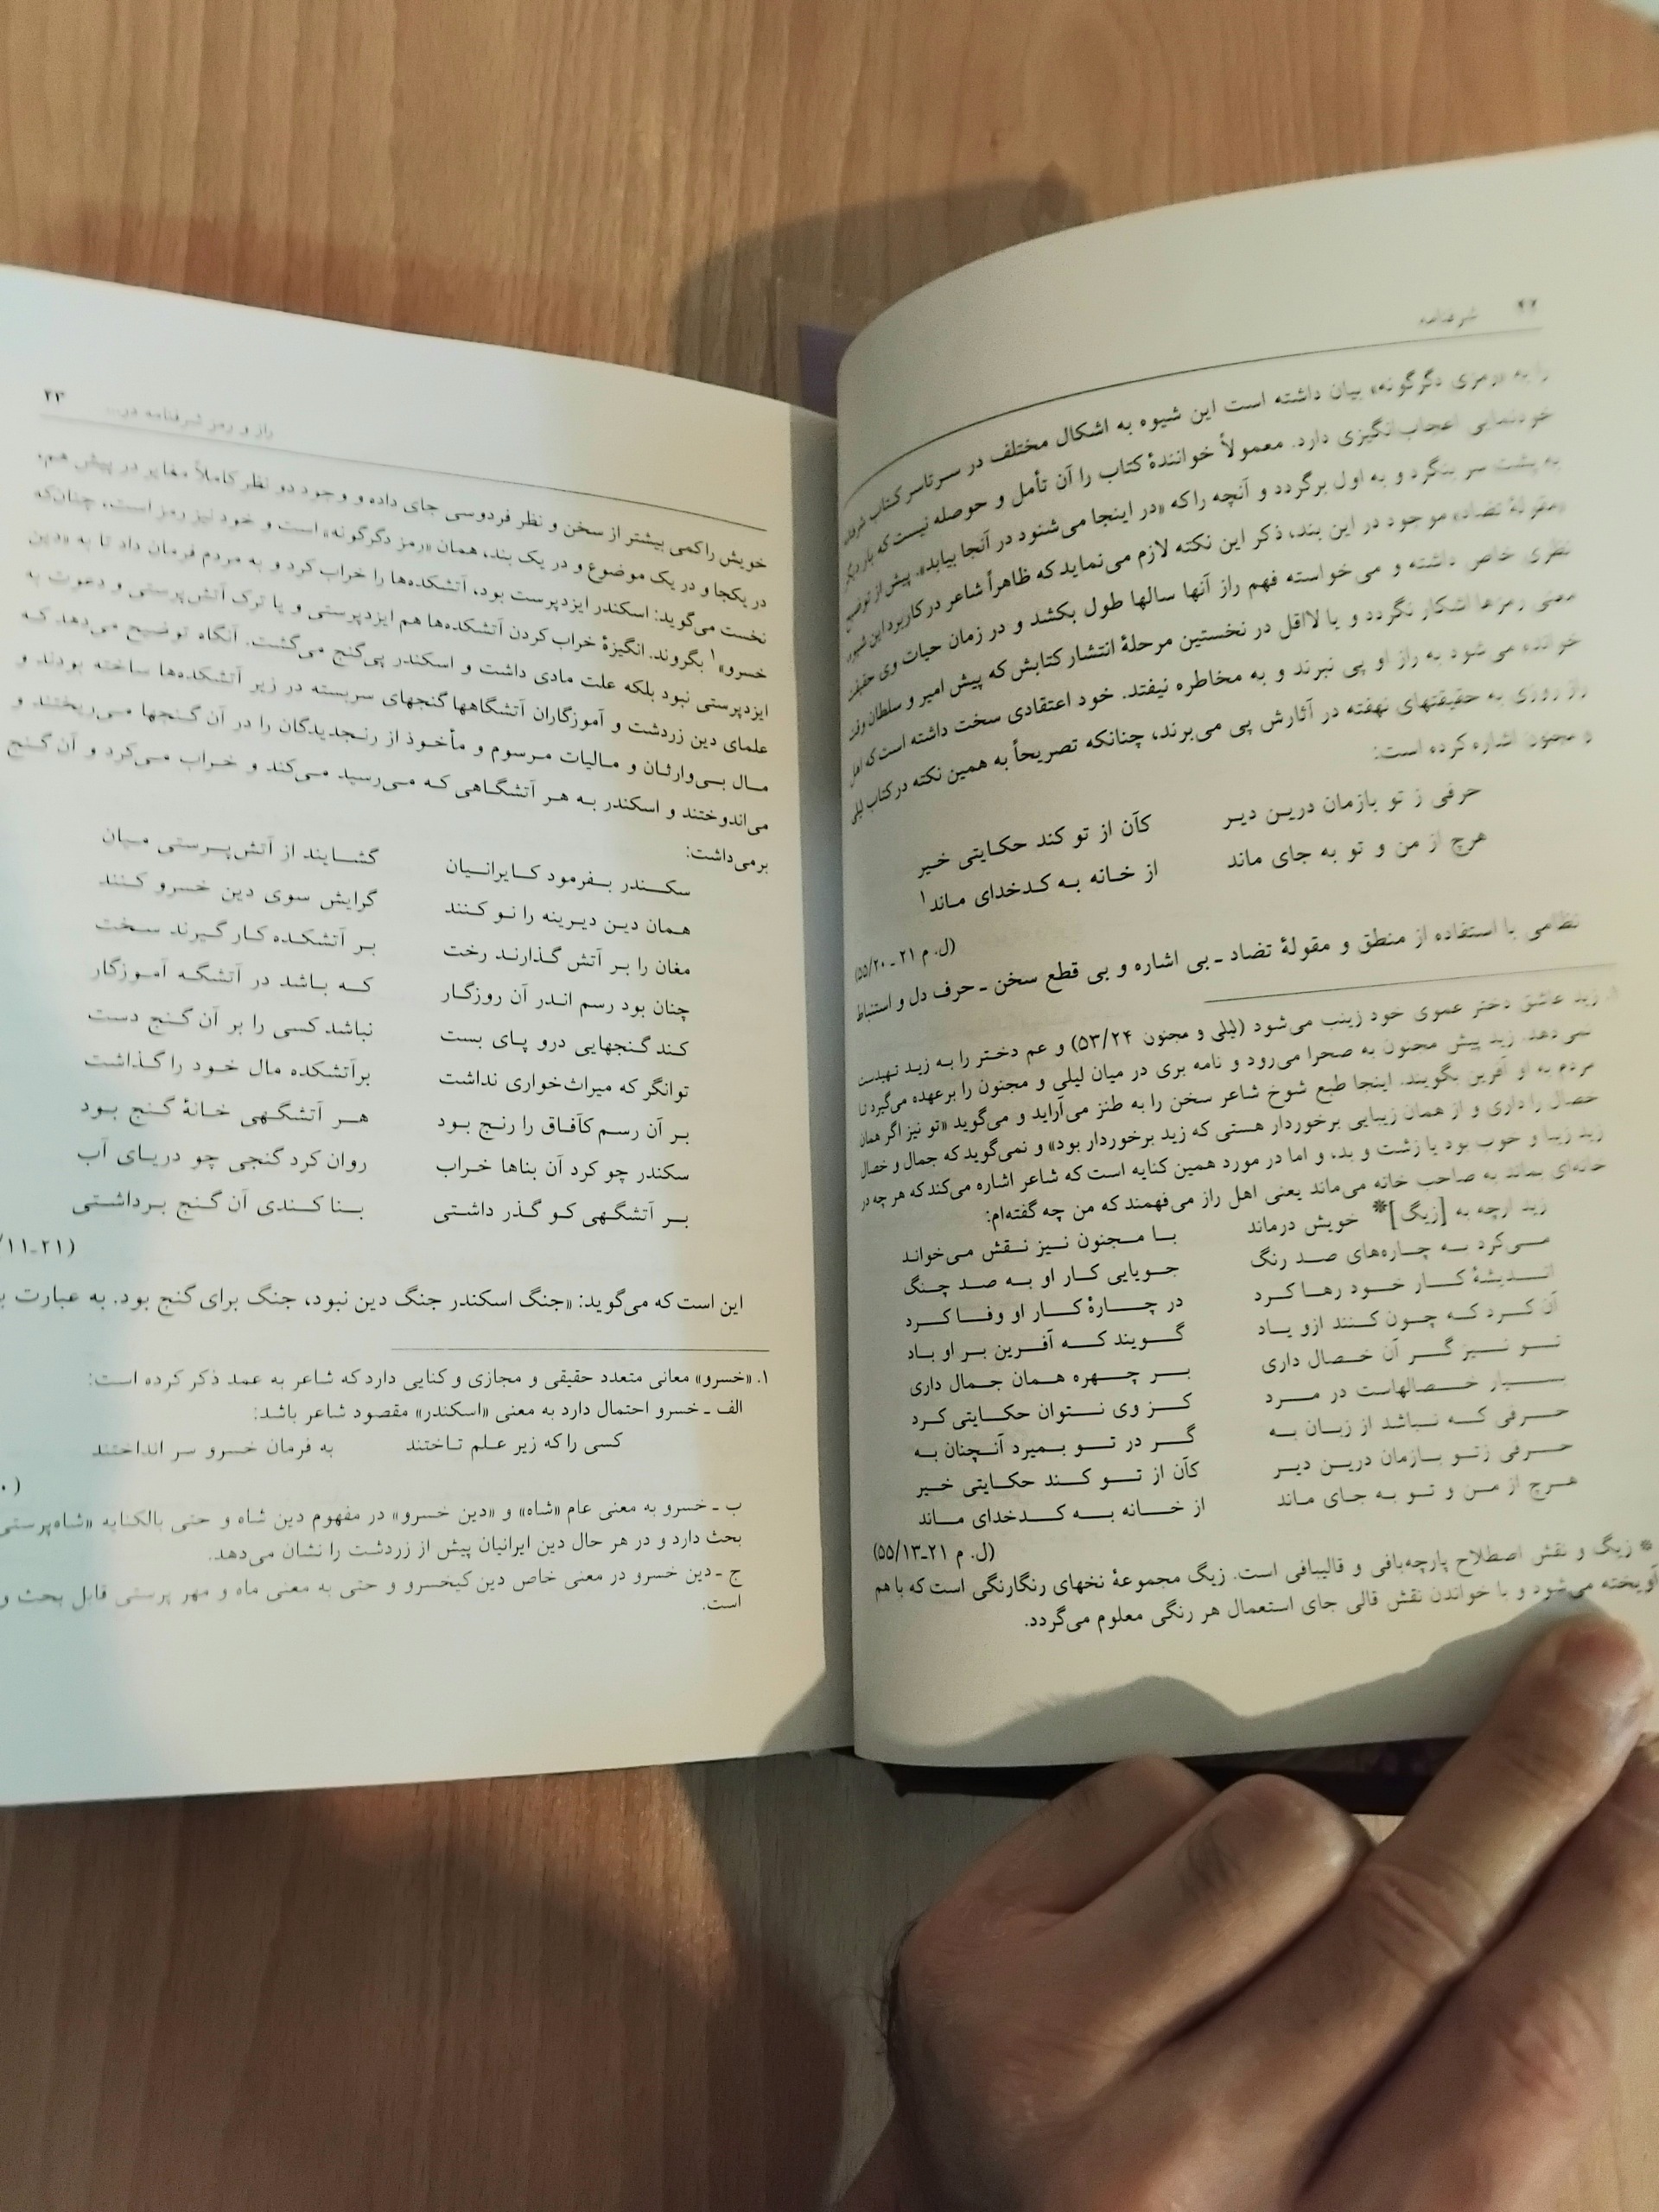 ۲۲ شرفنامه
را به «رمزی دگرگونه» بیان داشته است این شیوه به اشکال مختلف در سرتاسر کتاب
خودنمایی اعجاب‌انگیزی دارد. معمولاً خوانندهٔ کتاب را آن تأمل و حوصله نیست که بار دیگر
به پشت سر بنگرد و به اول برگردد و آنچه را که «در اینجا می‌شنود در آنجا بیابد». پیش از توضیح
«مقولهٔ تضاد» موجود در این بند، ذکر این نکته لازم می‌نماید که ظاهراً شاعر در کاربرد این شیوه
نظری خاص داشته و می‌خواسته فهم راز آنها سالها طول بکشد و در زمان حیات وی حقیقت
معنی رمزها آشکار نگردد و یا لااقل در نخستین مرحلهٔ انتشار کتابش که پیش امیر و سلطان وقت
خوانده می‌شود به راز او پی نبرند و به مخاطره نیفتد. خود اعتقادی سخت داشته است که اهل
راز روزی به حقیقتهای نهفته در آثارش پی می‌برند، چنانکه تصریحاً به همین نکته در کتاب لیلی
و مجنون اشاره کرده است:
حرفی ز تو بازمان درین دیر کآن از تو کند حکایتی خیر
هرچ از من و تو به جای ماند از خانه به کدخدای ماند۱
(ل. م ۲۱ ـ ۵۵/۲۰)
نظامی با استفاده از منطق و مقولهٔ تضاد ـ بی اشاره و بی قطع سخن ـ حرف دل و استنباط
۱. زید عاشق دختر عموی خود زینب می‌شود (لیلی و مجنون ۵۳/۲۴) و عم دختر را به زید تهیدست
نمی‌دهد. زید پیش مجنون به صحرا می‌رود و نامه بری در میان لیلی و مجنون را برعهده می‌گیرد تا
مردم به او آفرین بگویند. اینجا طبع شوخ شاعر سخن را به طنز می‌آراید و می‌گوید «تو نیز اگر همان
خصال را داری و از همان زیبایی برخوردار هستی که زید برخوردار بود» و نمی‌گوید که جمال و خصال
زید زیبا و خوب بود یا زشت و بد، و اما در مورد همین کنایه است که شاعر اشاره می‌کند که هر چه در
خانه‌ای بماند به صاحب خانه می‌ماند یعنی اهل راز می‌فهمند که من چه گفته‌ام:
زید ارچه به [زیگ]* خویش درماند با مجنون نیز نقش می‌خواند
می‌کرد به چاره‌های صد رنگ جویایی کار او به صد چنگ
اندیشهٔ کار خود رها کرد در چارهٔ کار او وفا کرد
آن کرد که چون کنند ازو یاد گویند که آفرین بر او باد
تو نیز گر آن خصال داری بر چهره همان جمال داری
بسیار خصالهاست در مرد کز وی نتوان حکایتی کرد
حرفی که نباشد از زبان به گر در تو بمیرد آنچنان به
حرفی زتو بازمان درین دیر کآن از تو کند حکایتی خیر
هرچ از من و تو به جای ماند از خانه به کدخدای ماند
(ل. م ۲۱ـ۵۵/۱۳)
* زیگ و نقش اصطلاح پارچه‌بافی و قالیبافی است. زیگ مجموعهٔ نخهای رنگارنگی است که با هم
آویخته می‌شود و با خواندن نقش قالی جای استعمال هر رنگی معلوم می‌گردد.
راز و رمز شرفنامه در... ۲۳
خویش را کمی بیشتر از سخن و نظر فردوسی جای داده و وجود دو نظر کاملاً مغایر در پیش هم،
در یکجا و در یک موضوع و در یک بند، همان «رمز دگرگونه» است و خود نیز رمز است، چنان‌که
نخست می‌گوید: اسکندر ایزدپرست بود، آتشکده‌ها را خراب کرد و به مردم فرمان داد تا به «دین
خسرو»۱ بگروند. انگیزهٔ خراب کردن آتشکده‌ها هم ایزدپرستی و یا ترک آتش‌پرستی و دعوت به
ایزدپرستی نبود بلکه علت مادی داشت و اسکندر پی‌گنج می‌گشت. آنگاه توضیح می‌دهد که
علمای دین زردشت و آموزگاران آتشگاهها گنجهای سربسته در زیر آتشکده‌ها ساخته بودند و
مال بی‌وارثان و مالیات مرسوم و مأخوذ از رنجدیدگان را در آن گنجها می‌ریختند و
می‌اندوختند و اسکندر به هر آتشگاهی که می‌رسید می‌کند و خراب می‌کرد و آن گنج
برمی‌داشت:
سکندر بفرمود کایرانیان گشایند از آتش‌پرستی میان
همان دین دیرینه را نو کنند گرایش سوی دین خسرو کنند
مغان را بر آتش گذارند رخت بر آتشکده کار گیرند سخت
چنان بود رسم اندر آن روزگار که باشد در آتشگه آموزگار
کند گنجهایی درو پای بست نباشد کسی را بر آن گنج دست
توانگر که میراث‌خواری نداشت برآتشکده مال خود را گذاشت
بر آن رسم کآفاق را رنج بود هر آتشگهی خانهٔ گنج بود
سکندر چو کرد آن بناها خراب روان کرد گنجی چو دریای آب
بر آتشگهی کو گذر داشتی بنا کندی آن گنج برداشتی
(۲۱ـ۱۱/
این است که می‌گوید: «جنگ اسکندر جنگ دین نبود، جنگ برای گنج بود. به عبارت
۱. «خسرو» معانی متعدد حقیقی و مجازی و کنایی دارد که شاعر به عمد ذکر کرده است:
الف ـ خسرو احتمال دارد به معنی «اسکندر» مقصود شاعر باشد:
کسی را که زیر علم تاختند به فرمان خسرو سر انداختند
ب ـ خسرو به معنی عام «شاه» و «دین خسرو» در مفهوم دین شاه و حتی بالکنایه «شاه‌پرستی
بحث دارد و در هر حال دین ایرانیان پیش از زردشت را نشان می‌دهد.
ج ـ دین خسرو در معنی خاص دین کیخسرو و حتی به معنی ماه و مهر پرستی قابل بحث و
است.